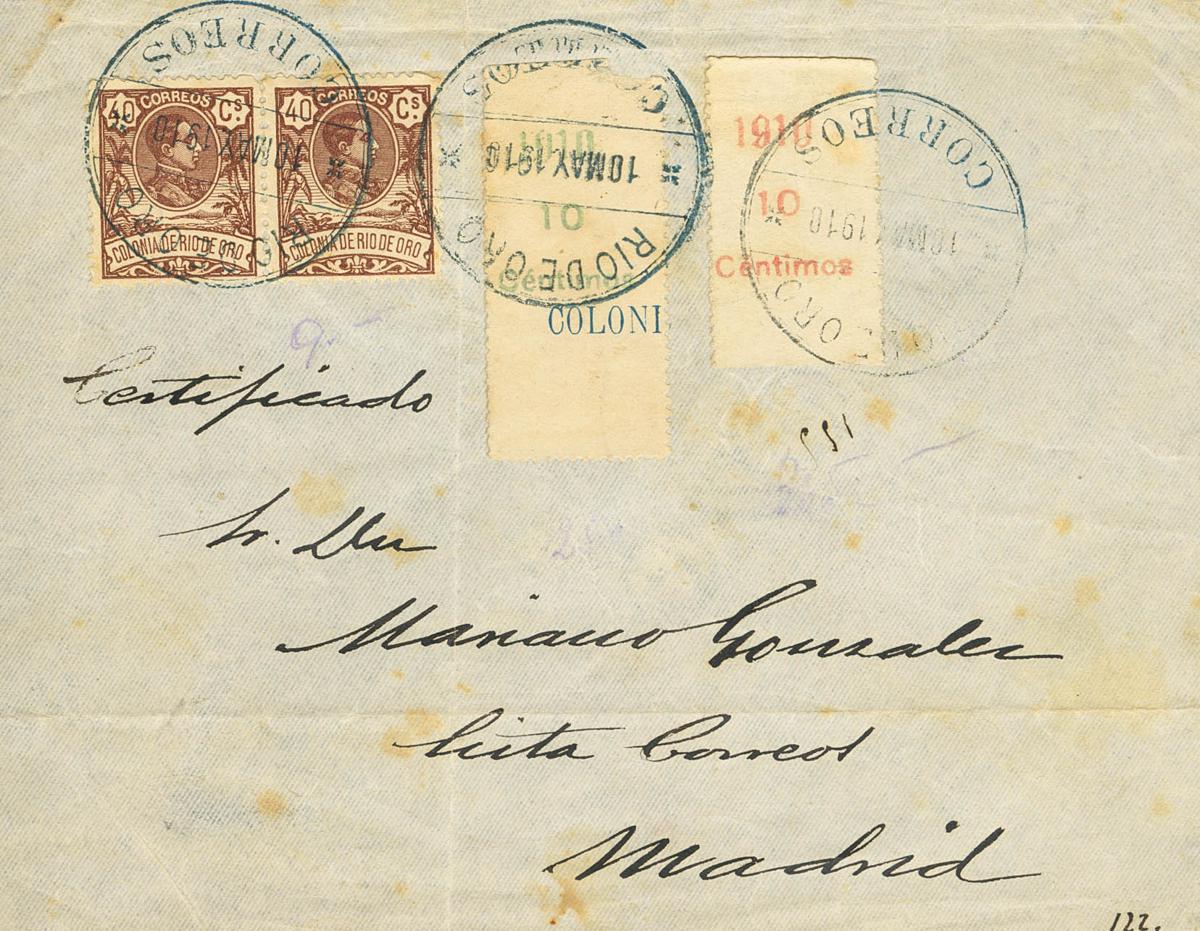 CORREOS
40 CORREOS Cs.
COLONIA DE RIO DE ORO
40 CORREOS Cs.
COLONIA DE RIO DE ORO
10 MAY.1910
RIO DE ORO
CORREOS
1910
10 MAY.1910
10
RIO DE ORO
Céntimos
COLONI
CORREOS
1910
10 MAY.1910
10
Céntimos
DE ORO
9.-
Certificado
155
Sr. Dn
Mariano Gonzalez
Lista Correos
Madrid
122.